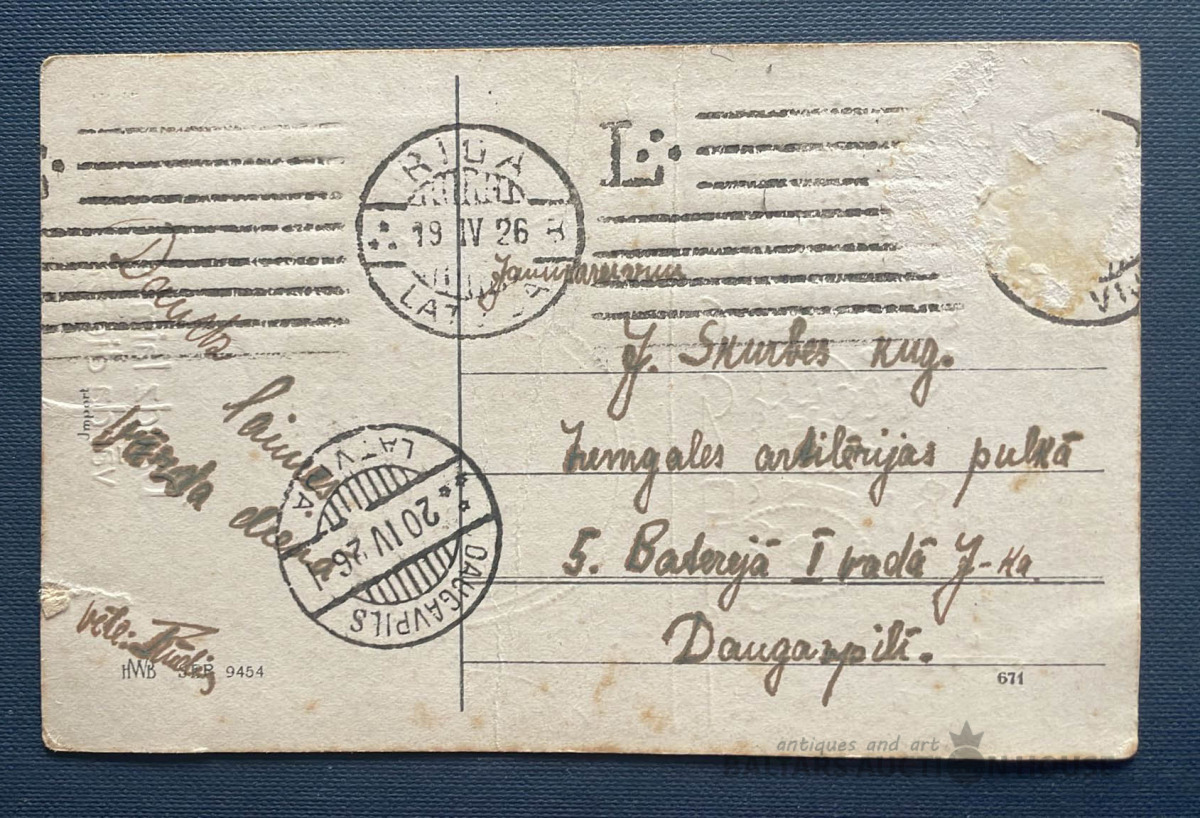 RIGA
19 IV 26
LATVIJA
L
J. Skurbes kug.
Zemgales artilērijas pulkā
5. Baterejā I vadā J-ka
Daugavpilī.
Daudz
laimes
vārda dienā
vēlē:
Import
LATVIJA
20 IV 26
DAUGAVPILS
HWB SER 9454
671
antiques and art
BALTARS AUCTION HOUSE